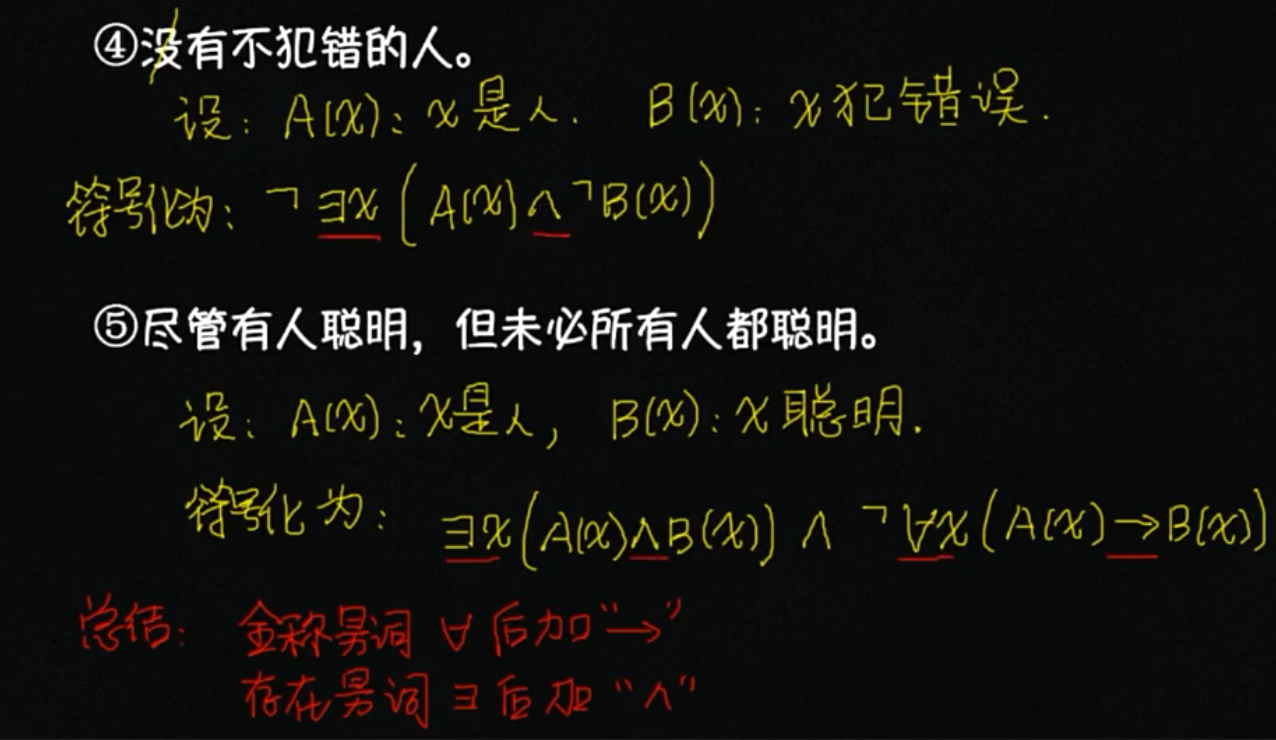 ④没有不犯错的人。
设: A(x): x是人. B(x): x犯错误.
符号化为: ¬∃x(A(x)∧¬B(x))
⑤尽管有人聪明，但未必所有人都聪明。
设: A(x): x是人, B(x): x聪明.
符号化为: ∃x(A(x)∧B(x)) ∧ ¬∀x(A(x)→B(x))
总结: 全称量词 ∀ 后加“→”
存在量词 ∃ 后加“∧”